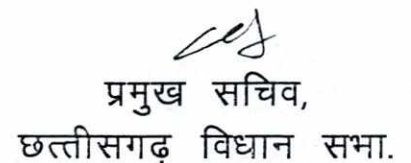 प्रमुख सचिव,
छत्तीसगढ़ विधान सभा.